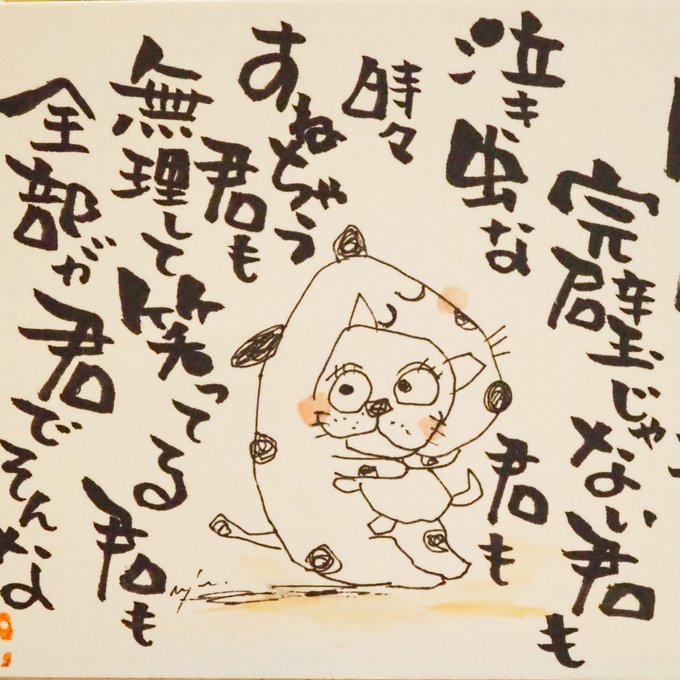 完璧じゃない君も
泣き虫な
君も
時々
すねちゃう
君も
無理して笑ってる
君も
全部が君でそんな